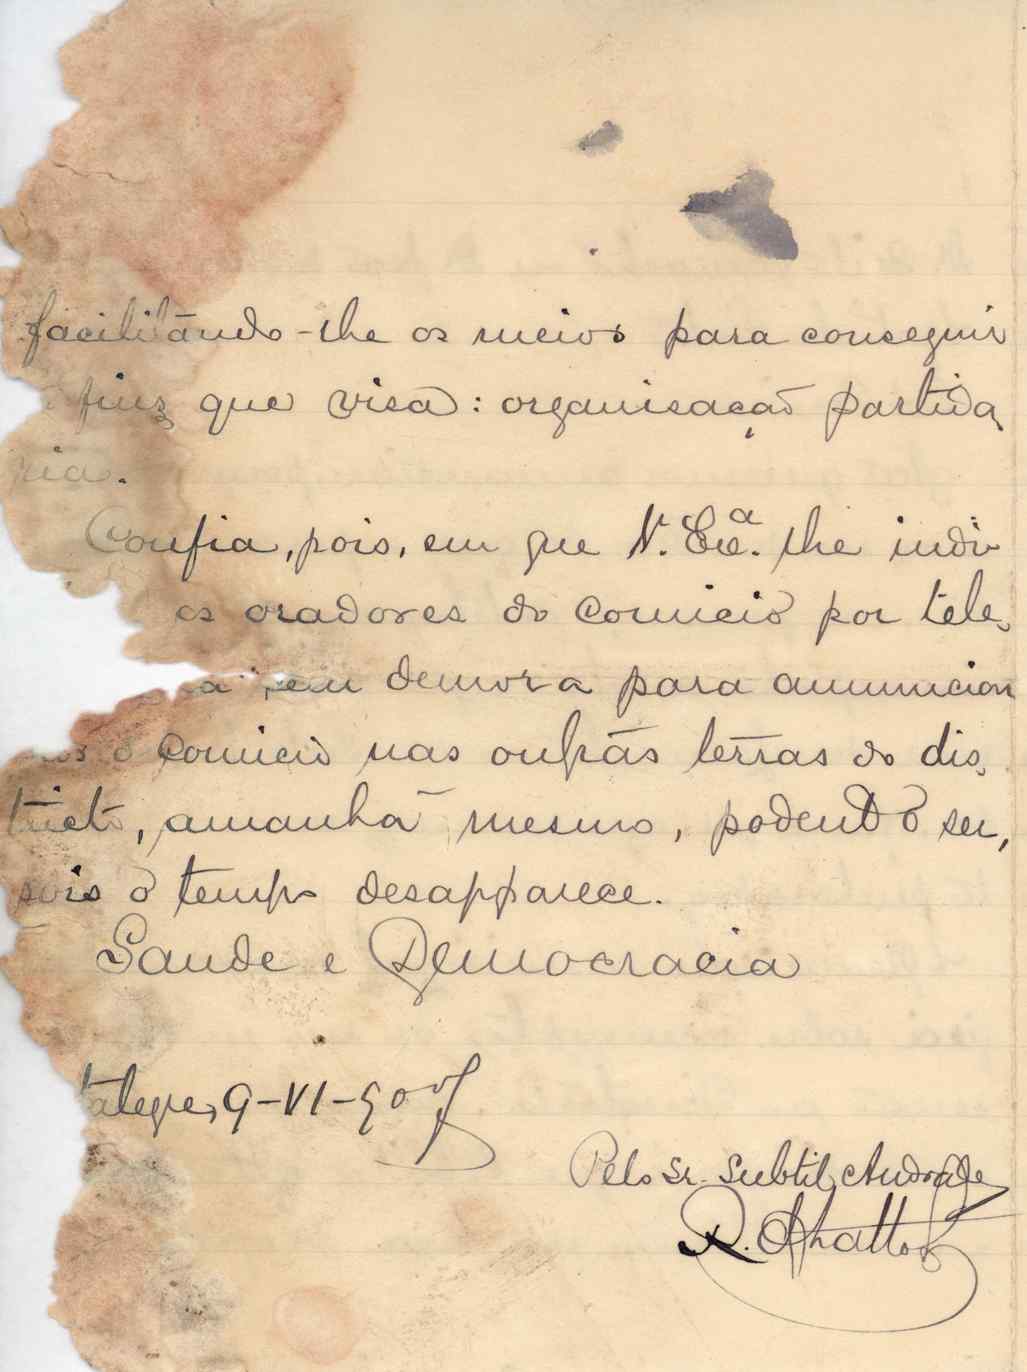 facilitando-lhe os meios para conseguir
fins que visa: organisação partida
ria.
Confia, pois, em que V. Exª. lhe indi
os oradores do comicio por tele,
sem demora para annunciar
mos o comicio nas outras terras do dis,
tricto, amanhã mesmo, podendo ser,
pois o tempo desapparece.
Saude e Democracia
talegre, 9-VI-90
Pelo Sr. Subtil Andrade
R.